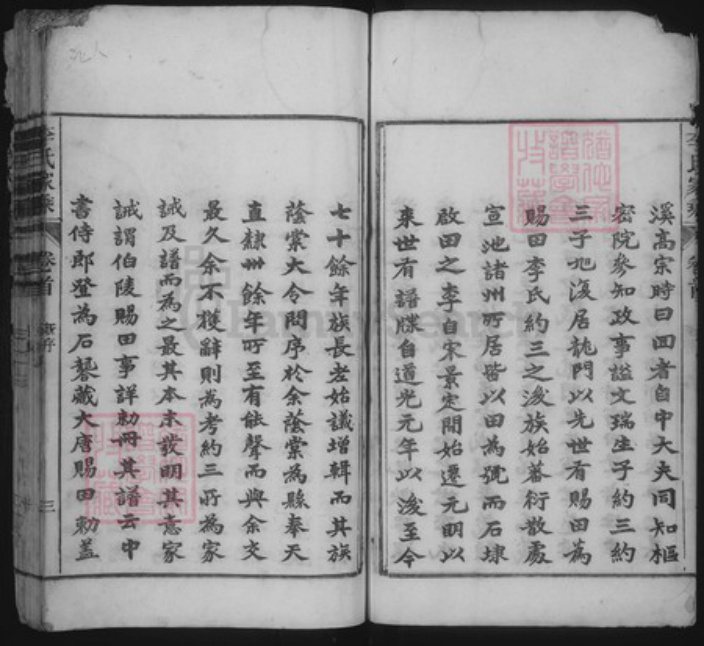 溪高宗時曰回者自中大夫同知樞
密院參知政事諡文瑞生子約三約
三子旭復居龍門以先世有賜田為
賜田李氏約三之後族始蕃衍散處
宣池諸州所居皆以田為號而石埭
啟田之李自宋景定間始遷元明以
來世有譜牒自道光元年以後至今
七十餘年族長老始議增輯而其族
蔭棠大令問序於余蔭棠為縣奉天
直隸卅餘年所至有能聲而與余交
最久余不獲辭則為考約三所為家
誡及譜而為之最其本末發明其意家
誡謂伯陵賜田事詳勅冊其譜云中
書侍郎登為石磬藏大唐賜田勅蓋
李氏家乘
卷首
三